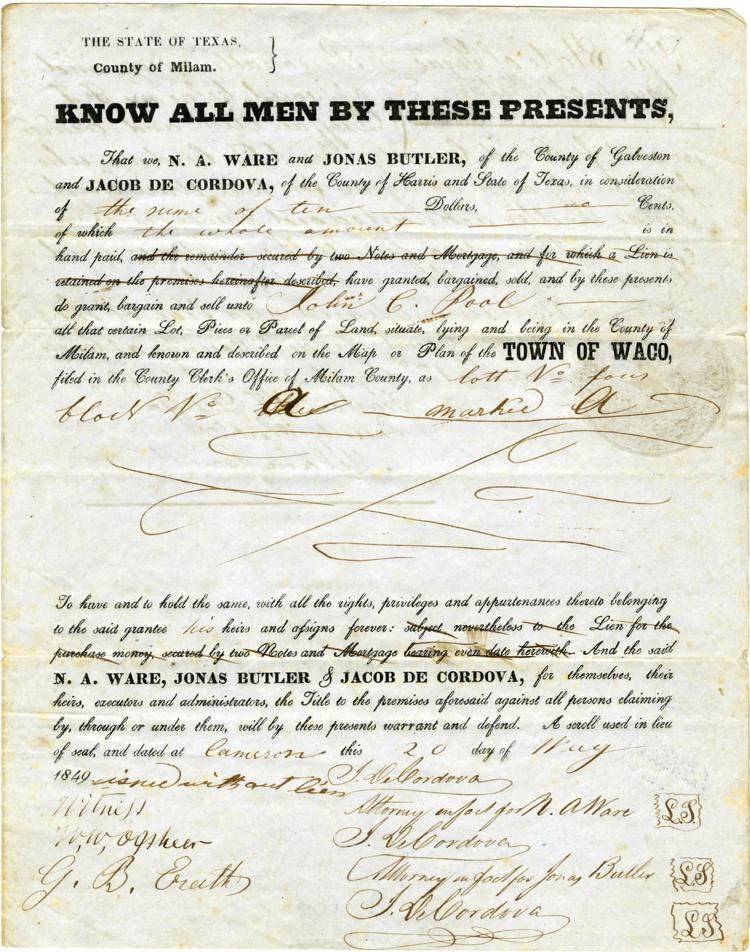 4
THE STATE OF TEXAS, }
County of Milam.
KNOW ALL MEN BY THESE PRESENTS,
That we, N. A. WARE and JONAS BUTLER, of the County of Galveston
and JACOB DE CORDOVA, of the County of Harris and State of Texas, in consideration
of the sume of ten Dollars, no Cents,
of which the whole amount is in
hand paid, and the remainder secured by two Notes and Mortgage, and for which a Lien is
retained on the premises hereinafter described, have granted, bargained, sold, and by these presents
do grant, bargain and sell unto John C. Pool
all that certain Lot, Piece or Parcel of Land, situate, lying and being in the County of
Milam, and known and described on the Map or Plan of the TOWN OF WACO,
filed in the County Clerk's Office of Milam County, as lott No four
block No a marked A
To have and to hold the same, with all the rights, privileges and appurtenances thereto belonging
to the said grantee his heirs and assigns forever: subject nevertheless to the Lien for the
purchase money, secured by two Notes and Mortgage bearing even date herewith. And the said
N. A. WARE, JONAS BUTLER & JACOB DE CORDOVA, for themselves, their
heirs, executors and administrators, the Title to the premises aforesaid against all persons claiming
by, through or under them, will by these presents warrant and defend. A scroll used in lieu
of seal, and dated at Cameron this 20 day of May
1849 signed without lien J. De Cordova
Witness Attorney in fact for N. A Ware LS
W, W, J. De Cordova
G. B. Erath Attorney in fact for Jonas Butler LS
J. De Cordova LS